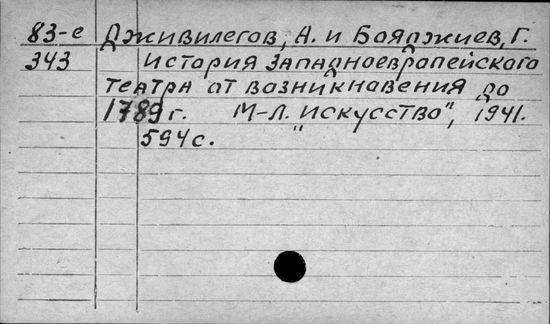 83-е Дживилегов, А. и Бояджиев, Г.
343 История западноевропейского
театра от возникновения до
1789 г. М-Л. „Искусство", 1941.
594 с.